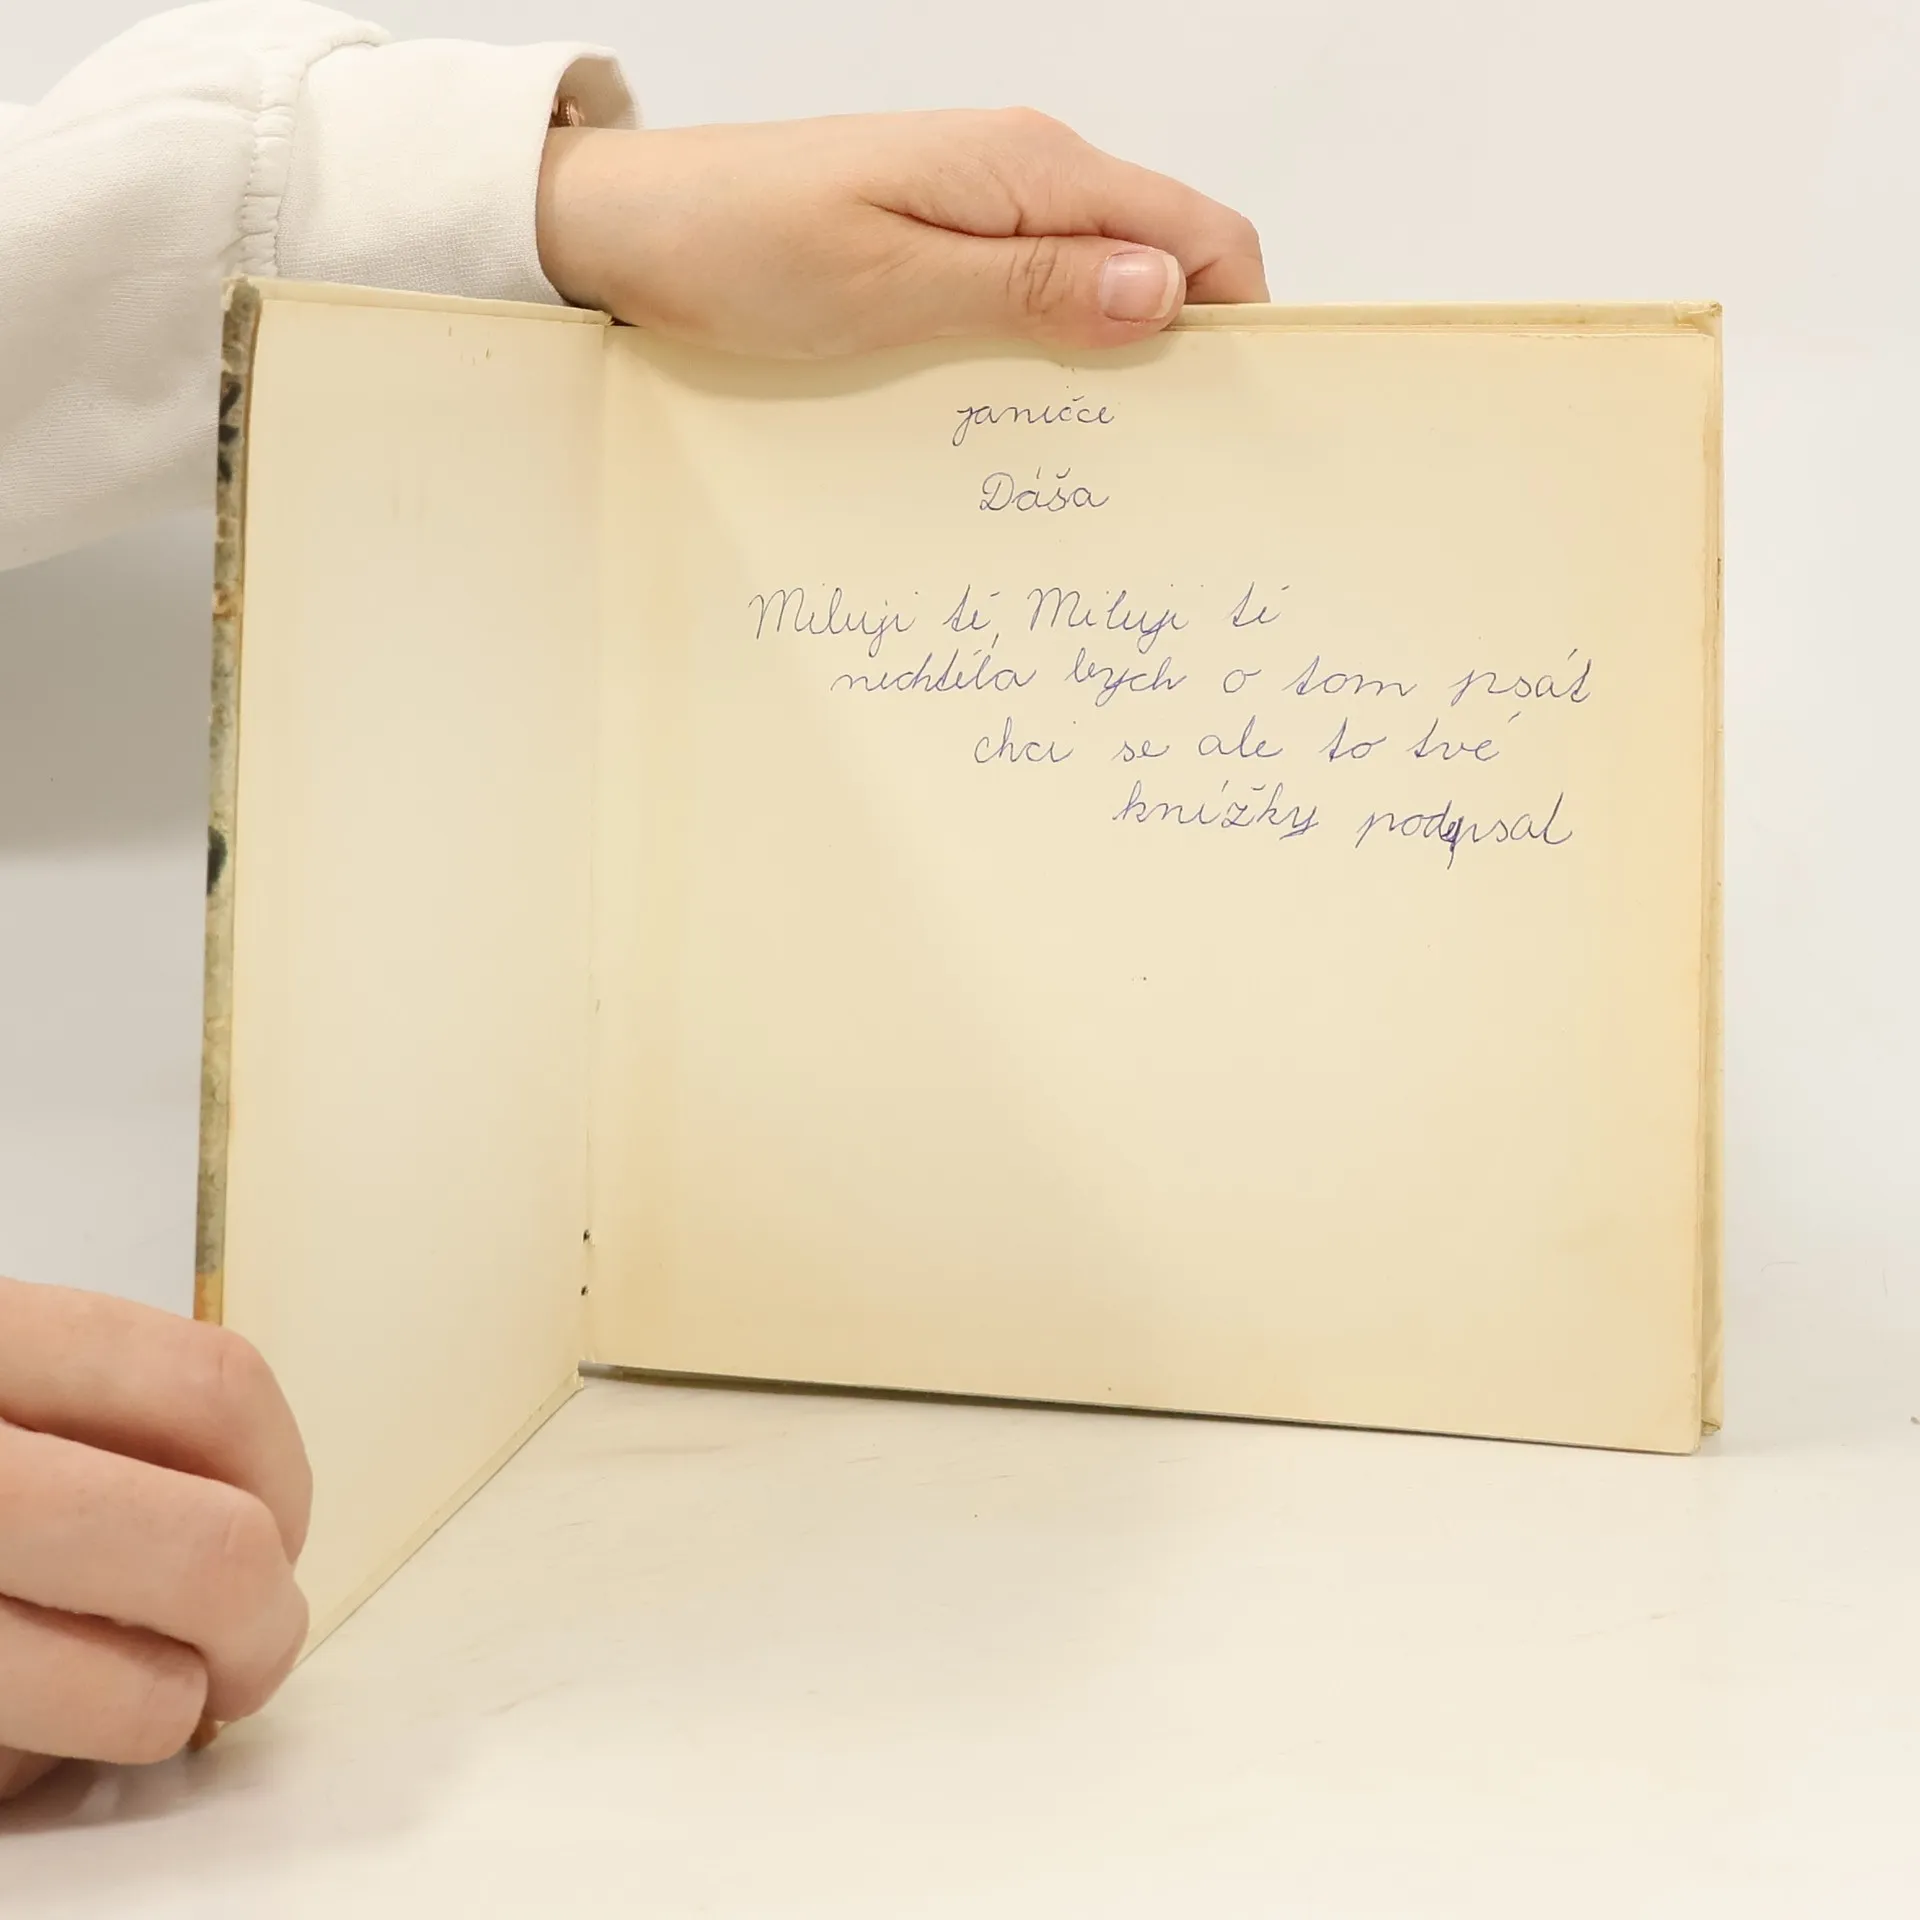 janičce
Dáša
Miluji tě, Miluji tě
nechtěla bych o tom psát
chci se ale to tvé
knížky podpsal